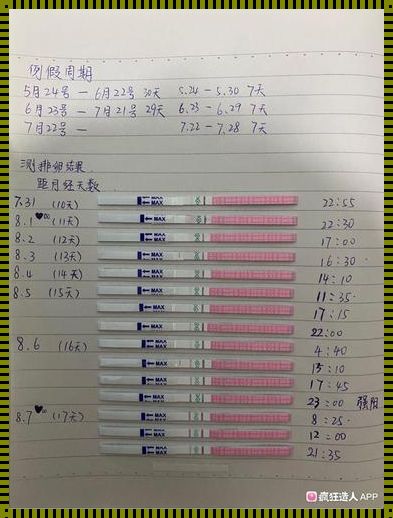 例假周期
5月24号 — 6月22号 30天 5.24 - 5.30 7天
6月23号 — 7月21号 29天 6.23 - 6.29 7天
7月22号 — 7.22 - 7.28 7天
测排卵结果
距月经天数
7.31 (10天) MAX 22:55
8.1 (11天) MAX 22:30
8.2 (12天) MAX 17:00
8.3 (13天) MAX 16:30
8.4 (14天) MAX 14:10
8.5 (15天) MAX 11:35
MAX 17:15
MAX 22:00
8.6 (16天) MAX 4:40
MAX 13:10
MAX 17:45
MAX 23:00 强阳
8.7 (17天) MAX 8:25
MAX 12:00
MAX 21:35
疯狂造人 APP